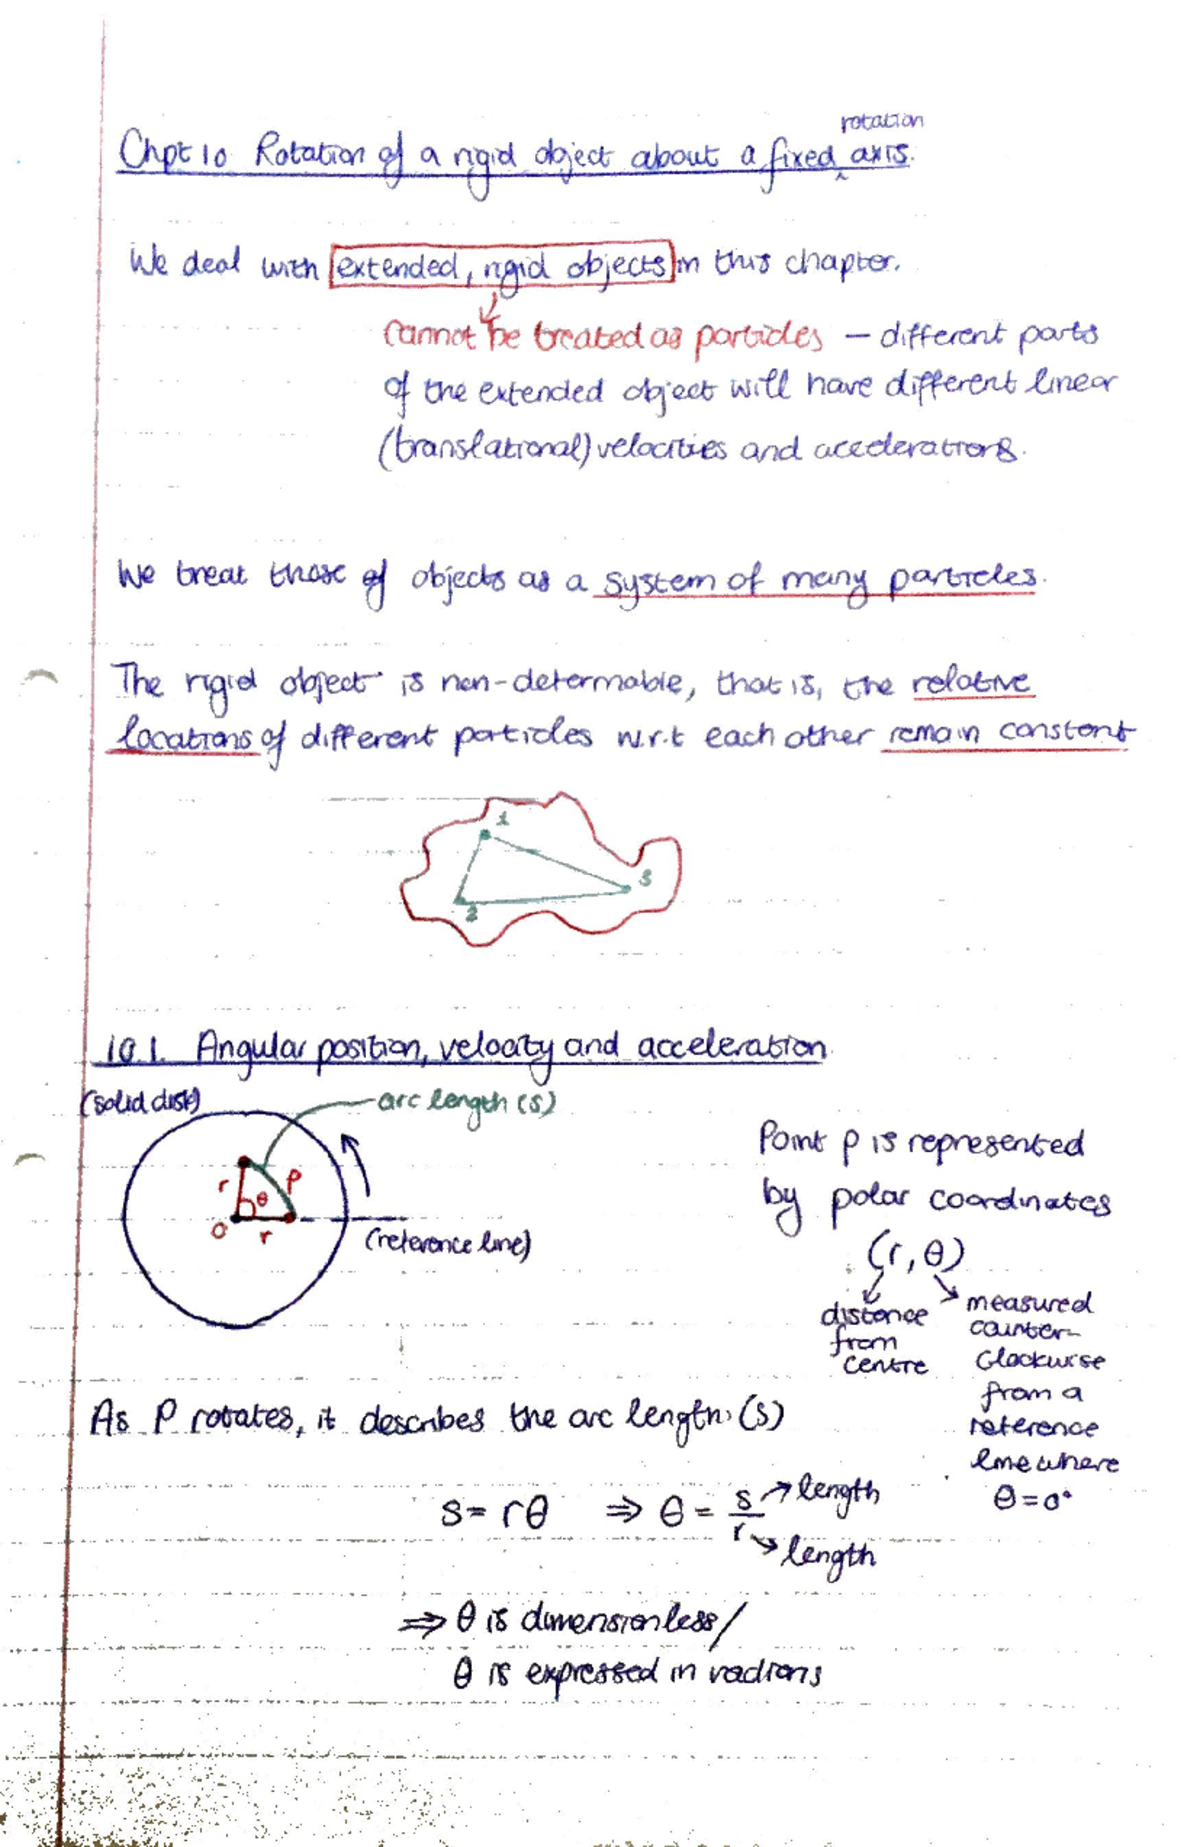 Chpt 10 Rotation of a rigid object about a fixed rotation axis.
We deal with extended, rigid objects in this chapter.
cannot be treated as particles — different parts
of the extended object will have different linear
(translational) velocities and accelerations.
We treat those of objects as a system of many particles.
The rigid object is non-determable, that is, the relative
locations of different particles w.r.t each other remain constant
1
2
3
10.1. Angular position, velocity and acceleration
(solid disk)
arc length (s)
r θ P
O r
(reference line)
Point P is represented
by polar coordinates
(r, θ)
distance
from
centre
measured
counter-
clockwise
from a
reference
line where
θ = 0°
As P rotates, it describes the arc length (s)
s = rθ ⇒ θ = s/r → length
→ length
⇒ θ is dimensionless/
θ is expressed in radians